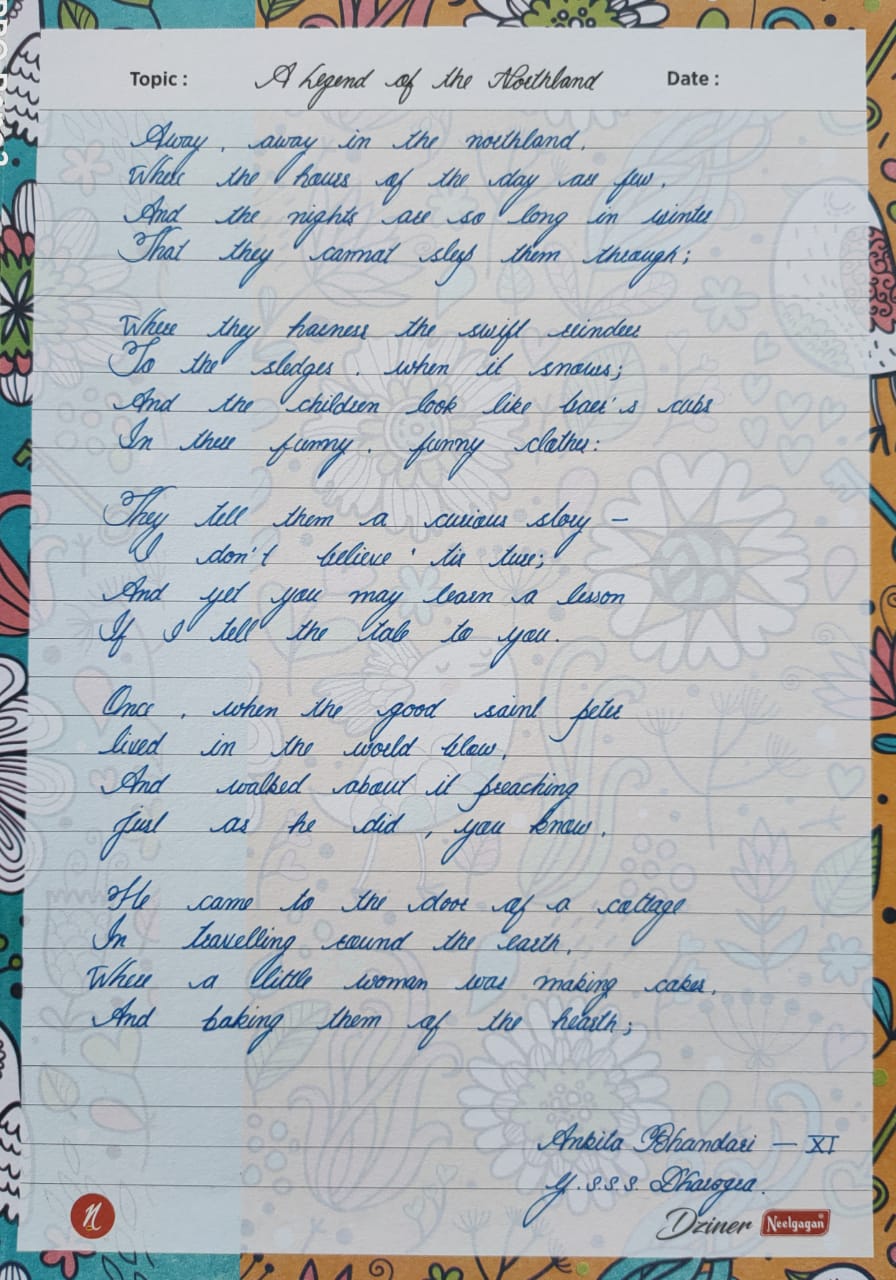 Topic : A Legend of the Northland Date :
Away, away in the northland,
Where the hours of the day are few,
And the nights are so long in winter
That they cannot sleep them through;
Where they harness the swift reindeer
To the sledges, when it snows;
And the children look like bear's cubs
In there funny, funny clothes:
They tell them a curious story —
I don't believe 'tis ture;
And yet you may learn a lesson
If I tell the tale to you.
Once, when the good saint peter
lived in the world blow,
And walked about it preaching
Just as he did, you know,
He came to the door of a cottage
In travelling round the earth,
Where a little woman was making cakes,
And baking them of the hearth;
Ankita Bhandari — XI
G.S.S.S. Dharogra.
Dziner Neelgagan